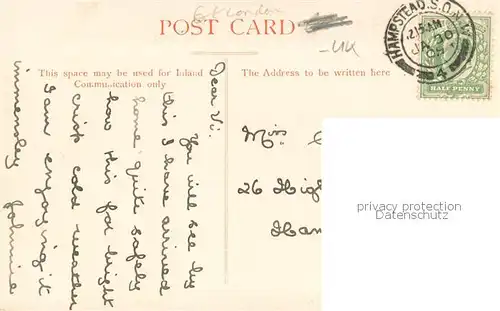 East London
POST CARD
-UK
HAMPSTEAD.S.O.N.W.
12.15AM
JA 30
4
HALF PENNY
This space may be used for Inland
Communication only
The Address to be written here
Dear Vi.
You will see by
this I have arrived
home quite safely
how this for bright
crisp cold weather
I am enjoying it
immensley Johnnie
Miss
26 Hig
Ham
privacy protection
Datenschutz